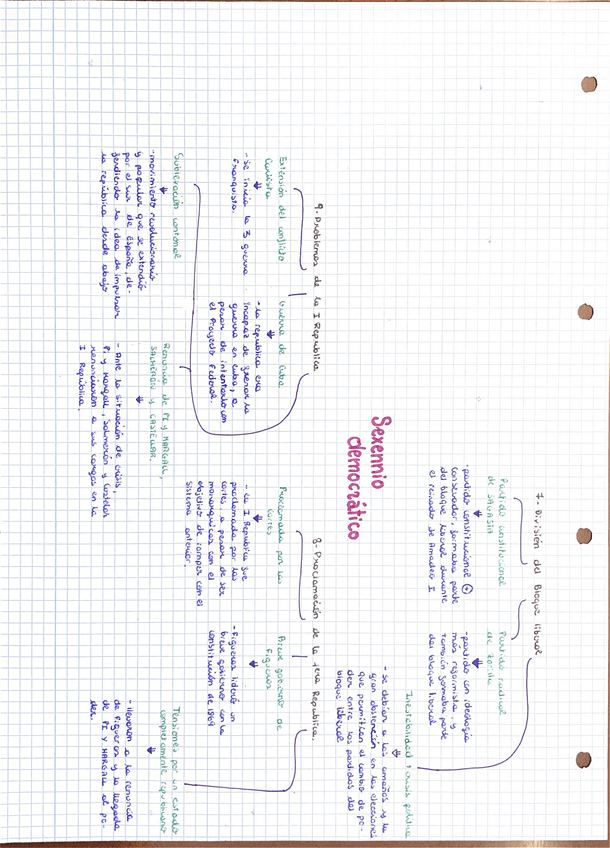 Sexennio
democrático
7. División del Bloque liberal
Partido constitucional
de SAGASTA
-partido constitucional ⊕
conservador, formaba parte
del bloque liberal durante
el reinado de Amadeo I
Partido radical
de Zorrilla
-partido con ideología
más reformista, y
también formaba parte
del bloque liberal
Inestabilidad + crisis política
- se debían a los amaños y la
gran abstención en las elecciones
que permitían el cambio de po-
der entre los partidos del
bloque liberal
8. Proclamación de la 1era República.
Proclamada por las
cortes
- La I República fue
proclamada por las
cortes a pesar de ser
monárquicas con el
objetivo de romper con el
sistema anterior.
Breve gobierno de
Figueras
- Figueras lideró un
breve gobierno con la
constitución de 1869
Tensiones por un estado
completamente republicano
- llevaron a la renuncia
de Figueras y la llegada
de PÍ Y MARGALL al po-
der.
9. Problemas de la I República
Extensión del conflicto
Carlista
- Se inicia la 3 guerra
franquista.
Guerra de Cuba
- La república era
incapaz de frenar la
guerra en Cuba, a
pesar de intentarlo con
el Proyecto Federal.
Sublevación cantonal
-movimiento revolucionario
y popular que se extendió
por el sur de España, de-
fendiendo la idea de impulsar
la república desde abajo
Renuncia de PÍ y MARGALL,
SALMERÓN y CASTELAR.
- Ante la situación de crisis,
Pi y Margall, Salmerón y
renunciaron a sus cargos en la
I República.